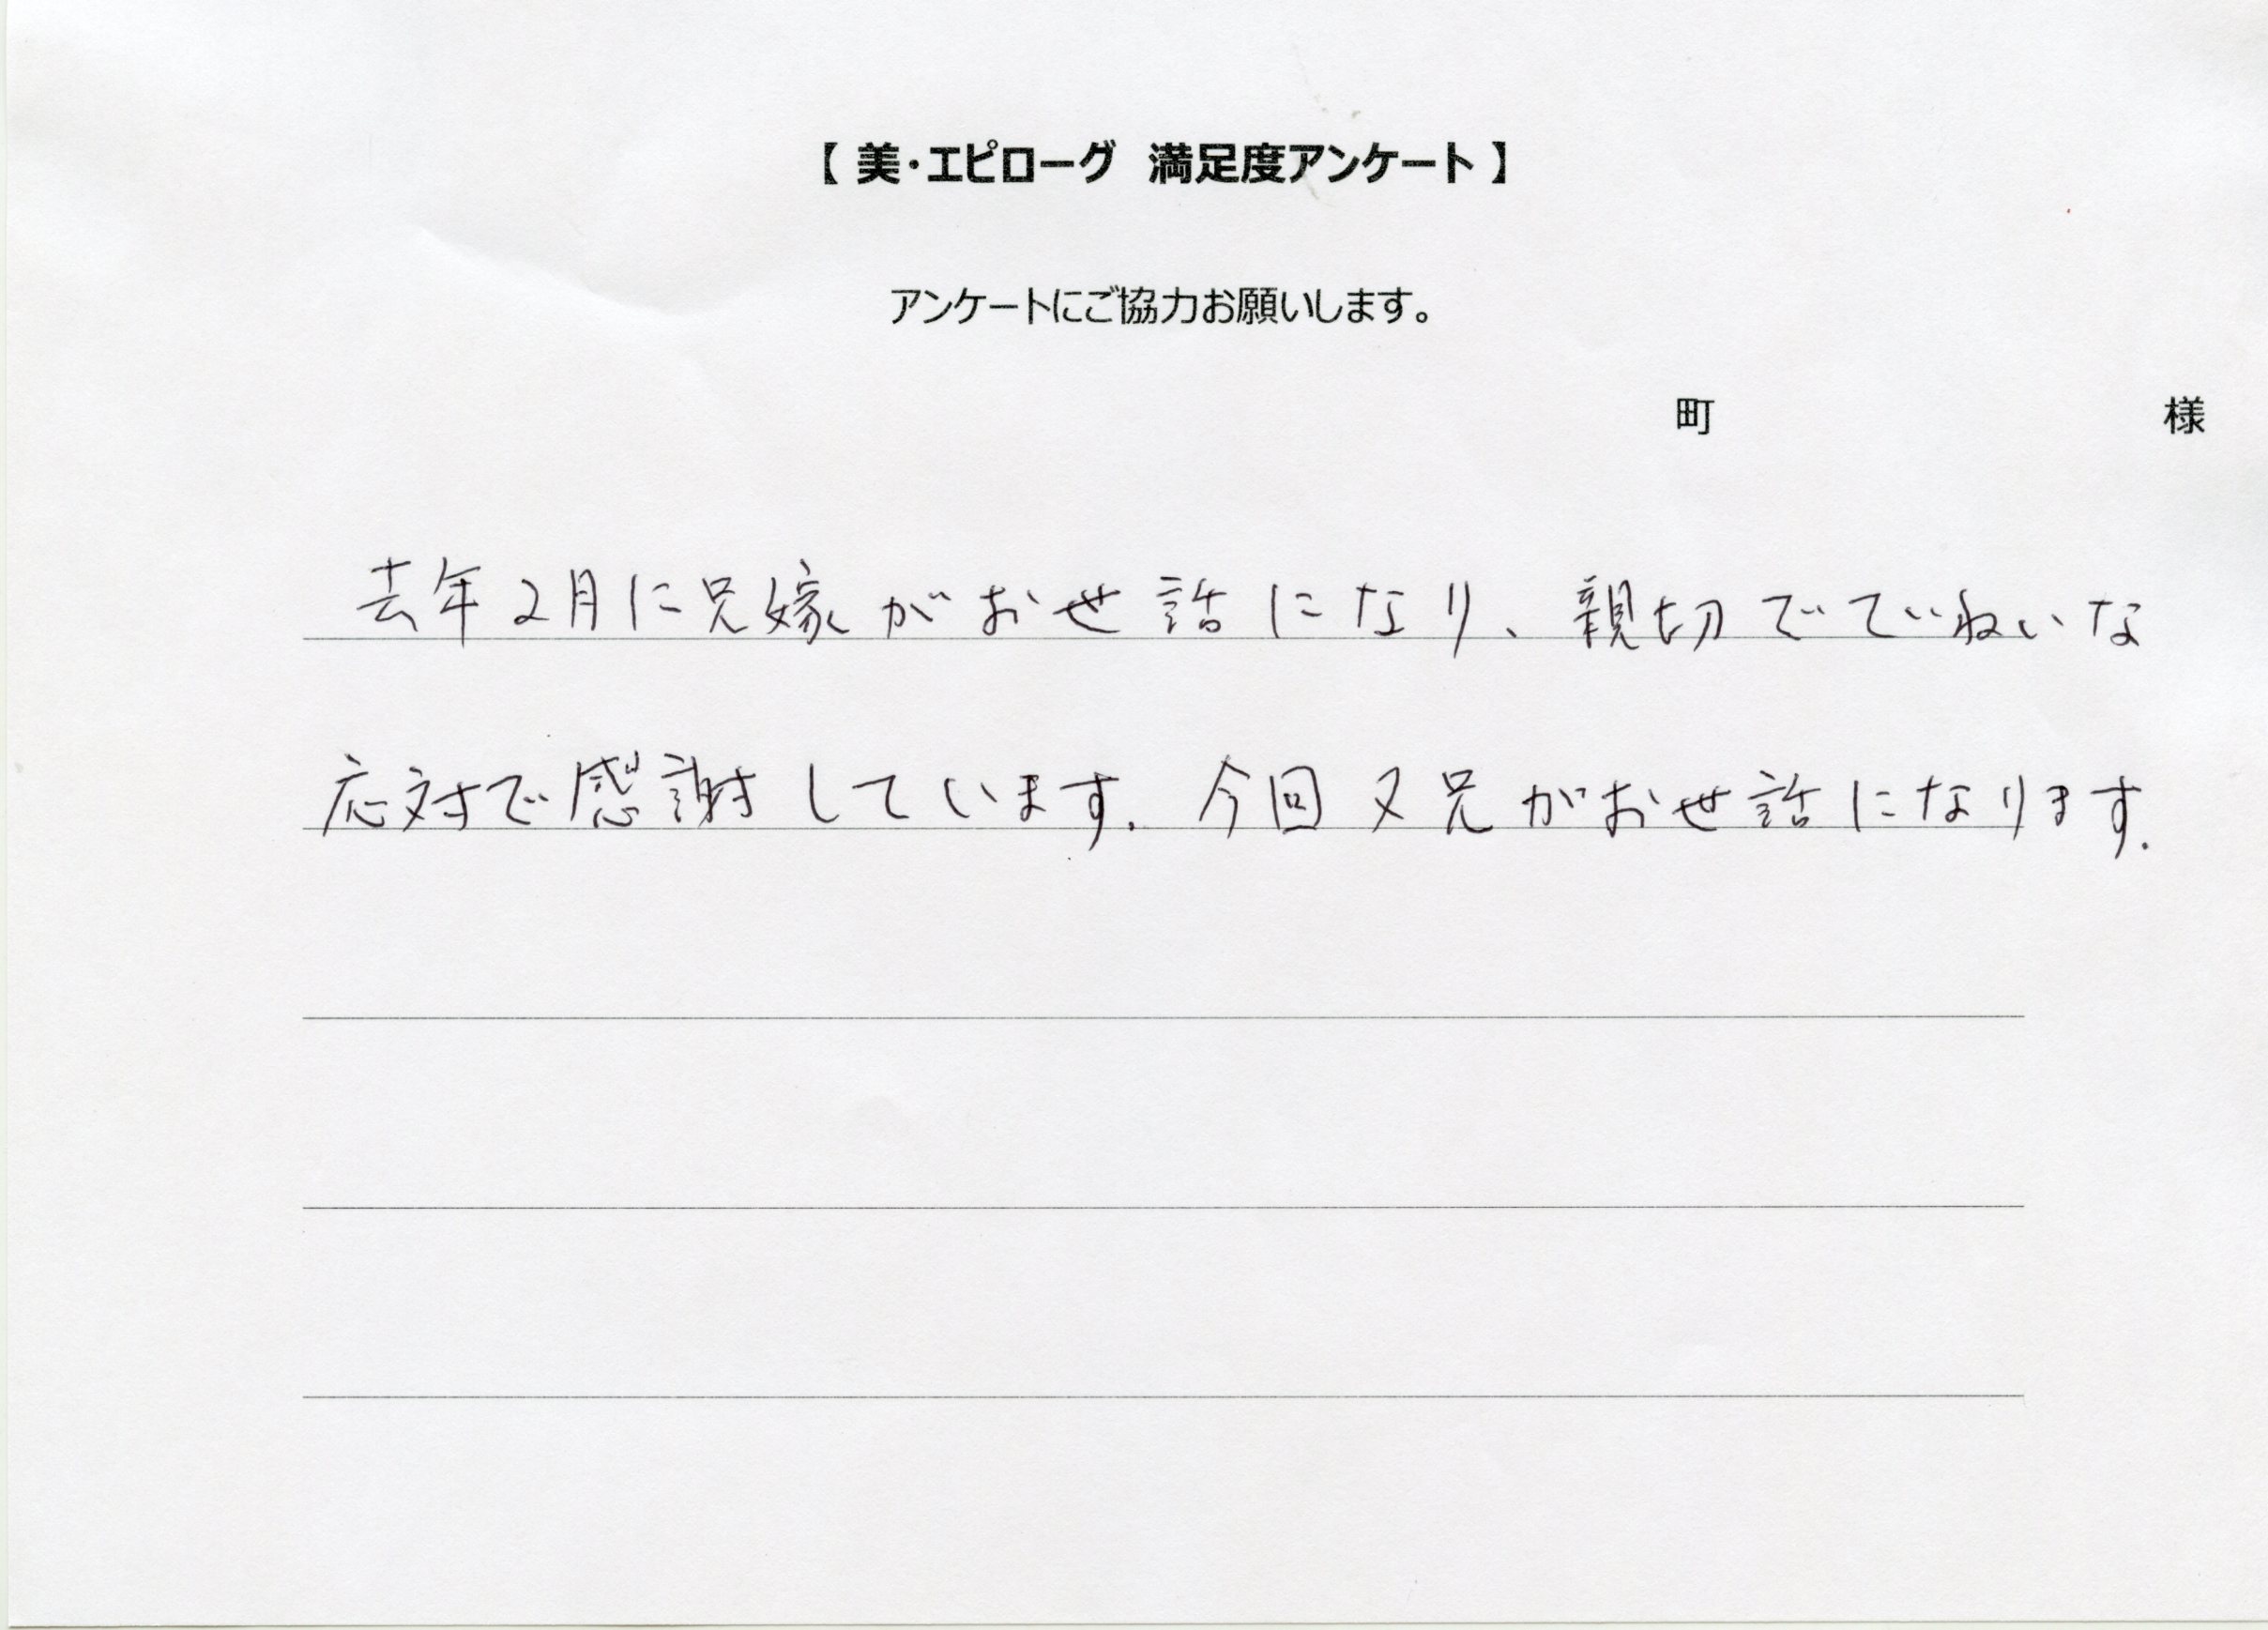 【 美・エピローグ　満足度アンケート 】
アンケートにご協力お願いします。
町　様
去年2月に兄嫁がお世話になり、親切でていねいな
応対で感謝しています. 今回又兄がお世話になります.